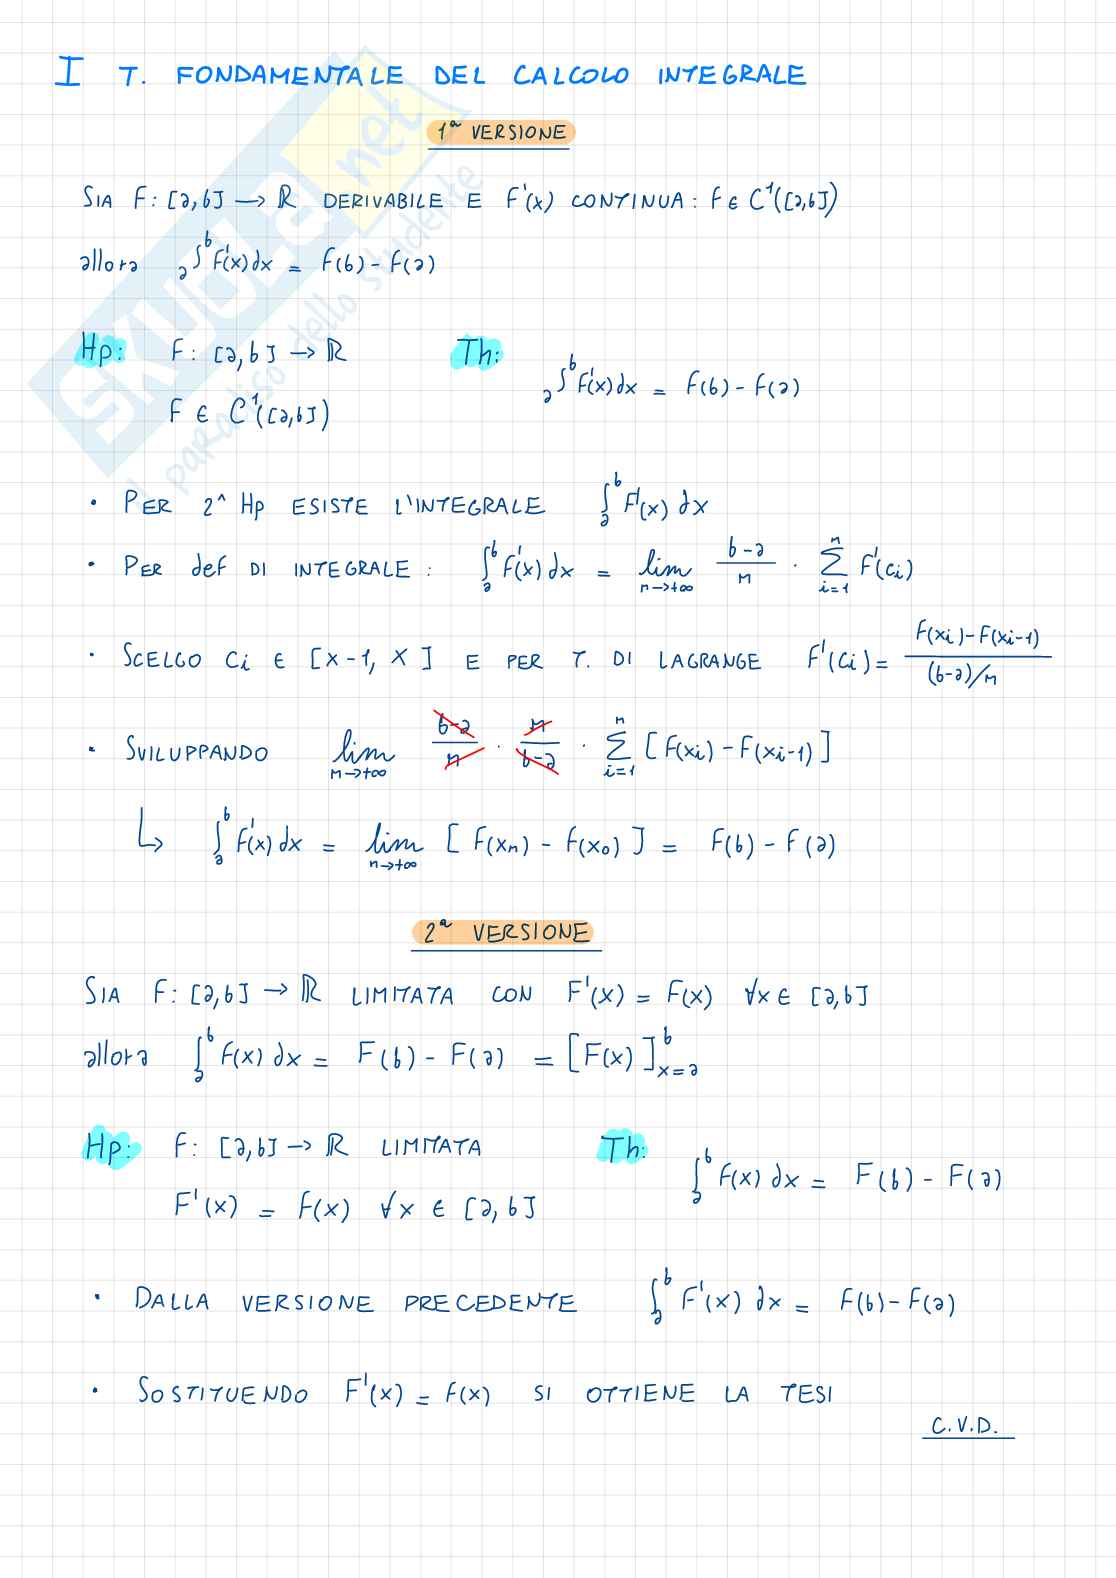 I T. FONDAMENTALE DEL CALCOLO INTEGRALE
1ª VERSIONE
SIA F: [a,b] → ℝ DERIVABILE E F'(x) CONTINUA: F ∈ C¹([a,b])
allora a∫ᵇ F'(x) dx = F(b) - F(a)
Hp: F: [a,b] → ℝ Th:
a∫ᵇ F'(x) dx = F(b) - F(a)
F ∈ C¹([a,b])
• PER 2^ Hp ESISTE L'INTEGRALE ∫ₐᵇ F'(x) dx
• PER def DI INTEGRALE: ∫ₐᵇ F'(x) dx = lim n→+∞ (b-a)/n · Σ i=1 n F'(ci)
• SCELGO Ci ∈ [x-1, x] E PER T. DI LAGRANGE F'(ci) = (F(xi) - F(xi-1))/((b-a)/n)
• SVILUPPANDO lim n→+∞ (b-a)/n · n/(b-a) · Σ i=1 n [F(xi) - F(xi-1)]
↳ ∫ₐᵇ F'(x) dx = lim n→+∞ [F(xn) - F(x₀)] = F(b) - F(a)
2ª VERSIONE
SIA F: [a,b] → ℝ LIMITATA CON F'(x) = f(x) ∀x ∈ [a,b]
allora ∫ₐᵇ f(x) dx = F(b) - F(a) = [F(x)]ᵇx=a
Hp: F: [a,b] → ℝ LIMITATA Th:
∫ₐᵇ f(x) dx = F(b) - F(a)
F'(x) = f(x) ∀x ∈ [a,b]
• DALLA VERSIONE PRECEDENTE ∫ₐᵇ F'(x) dx = F(b) - F(a)
• SOSTITUENDO F'(x) = f(x) SI OTTIENE LA TESI
C.V.D.
SKUOLA.net
il paradiso dello studente